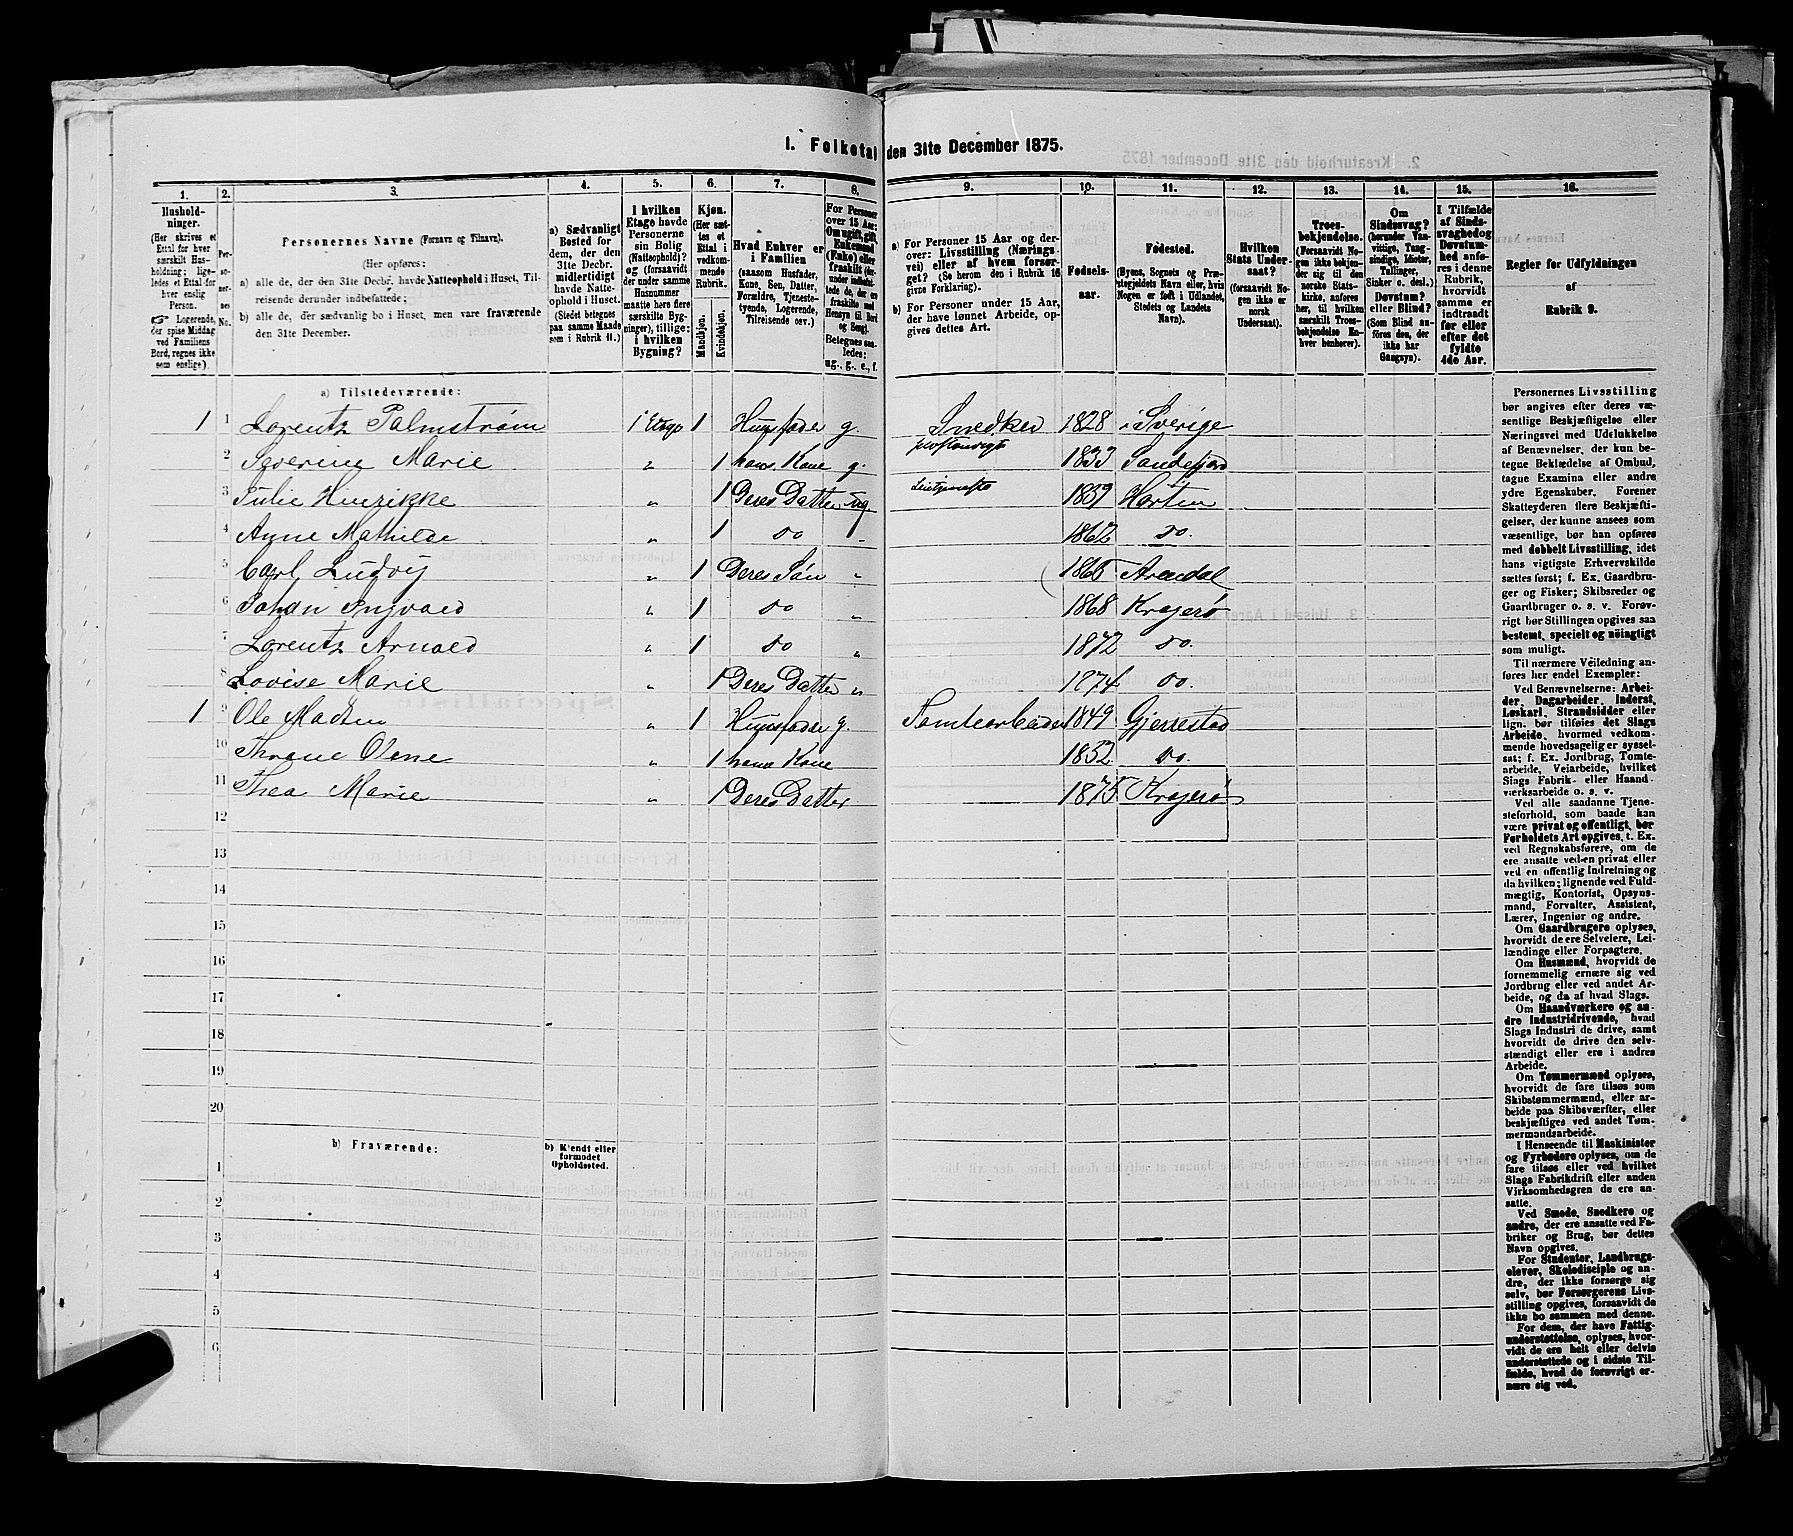 1. Folketal den 31te December 1875.
1. 2. 3. 4. 5. 6. 7. 8. 9. 10. 11. 12. 13. 14. 15. 16.
Hushold-
ninger.
(Her skrives et
Ettal for hver
særskilt Hus-
holdning; lige-
ledes et Ettal for
hver enslig
Person.
☞ Logerende,
der spise Middag
ved Familiens
Bord, regnes ikke
som enslige).
Per-
so-
ner-
nes
No.
Personernes Navne (Fornavn og Tilnavn).
(Her opføres:
a) alle de, der den 31te Decbr. havde Natteophold i Huset, Til-
reisende derunder indbefattede;
b) alle de, der sædvanlig bo i Huset, men vare fraværende
den 31te December.
a) Sædvanligt
Bosted for
dem, der den
31te Decbr.
midlertidigt
havde Natte-
ophold i Huset.
(Stedet betegnes
paa samme Maade
som i Rubrik 11.)
I hvilken
Etage havde
Personerne
sin Bolig
(Natteophold)?
og (forsaavidt
der under samme
Husnummer
maatte høre flere
særskilte Byg-
ninger), tillige:
i hvilken
Bygning?
Kjøn.
(Her sæt-
tes et
Ettal i
vedkom-
mende
Rubrik.
Mandkjøn.
Kvindekjøn.
Hvad Enhver er
i Familien
(saasom Husfader,
Kone, Søn, Datter,
Forældre, Tjeneste-
tyende, Logerende,
Tilreisende osv.)
For Personer
over 15 Aar:
Om ugift, gift,
Enkemand
(Enke) eller
fraskilt (der-
under indbefat-
tede de, der ere
fraskilte med
Hensyn til Bord
og Seng).
Betegnes saa-
ledes:
ug., g., e., f.
a) For Personer 15 Aar og der-
over: Livsstilling (Nærings-
vei) eller af hvem forsør-
get? (Se herom den i Rubrik 16
givne Forklaring).
b) For Personer under 15 Aar,
der have lønnet Arbeide, op-
gives dettes Art.
Fødsels-
aar.
Fødested.
(Byens, Sognets og Præ-
stegjeldets Navn eller, hvis
Nogen er født i Udlandet,
Stedets og Landets
Navn).
Hvilken
Stats Under-
saat?
(forsaavidt No-
gen ikke er
norsk
Undersaat).
Troes-
bekjendelse.
(Forsaavidt No-
gen ikke bekjen-
der sig til den
norske Stats-
kirke, anføres
her, til hvilken
særskilt Troes-
bekjendelse En-
hver henhører).
Om
Sindssvag?
(herunder Van-
vittige, Tung-
sindige, Idioter,
Tullinger,
Sinker o. desl.)
Døvstum?
eller Blind?
(Som Blind an-
føres den, der
ikke har
Gangsyn).
I Tilfælde
af Sinds-
svaghed og
Døvstum-
hed anfø-
res i denne
Rubrik,
hvorvidt
samme er
indtraadt
før eller
efter det
fyldte
4de Aar.
Regler for Udfyldningen
af
Rubrik 9.
a) Tilstedeværende:
1 1 Lorentz Palmstrøm 1 Etage 1 Huusfader g. Snedker 1828 i Sverige
2 Severine Marie " 1 hans Kone g. 1833 Sandefjord
3 Julie Henrikke " 1 Deres Datter ug. 1859 Horten
4 Anne Mathilde " 1 do " 1862 do.
5 Carl Ludvig " 1 Deres Søn " 1865 Arendal
6 Johan Ingvald " 1 do " 1868 Kragerø
7 Lorentz Arnold " 1 do " 1872 do.
8 Lovise Marie " 1 Deres Datter " 1874 do.
1 9 Ole Madsen " 1 Huusfader g. Tomtearbeider 1849 Gjerrestad
10 Olene " 1 hans Kone 1852 do.
11 Thea Marie " 1 Deres Datter 1875 Kragerø
12
13
14
15
16
17
18
19
20
b) Fraværende:
b) Kjendt eller
formodet
Opholdssted.
1
2
3
4
5
6
Personernes Livsstilling
bør angives efter deres væ-
sentlige Beskjæftigelse eller
Næringsvei med Udelukkelse
af Benævnelser, der kun be-
tegne Beklædelse af Ombud,
tagne Examina eller andre
ydre Egenskaber. Forener
Skatteyderen flere Beskjæfti-
gelser, der kunne ansees som
væsentlige, bør han opføres
med dobbelt Livsstilling, idet
hans vigtigste Erhvervskilde
sættes først; f. Ex. Gaardbru-
ger og Fisker; Skibsreder og
Gaardbruger o. s. v. Forøv-
rigt bør Stillingen opgives saa
bestemt, specielt og nøiagtigt
som muligt.
Til nærmere Veiledning an-
føres her endel Exempler:
Ved Benævnelserne: Arbei-
der, Dagarbeider, Inderst,
Løskarl, Strandsidder eller
lign. bør tilføies det Slags
Arbeide, hvormed vedkom-
mende hovedsagelig er syssel-
sat; f. Ex. Jordbrug, Tomte-
arbeide, Veiarbeide, hvilket
Slags Fabrik- eller Haand-
værksarbeide o. s. v.
Ved alle saadanne Tjene-
steforhold, som baade kan
være privat og offentligt, bør
Forholdets Art opgives, t. Ex.
ved Regnskabsførere, om de
ere ansatte ved en privat eller
ved en offentlig Indretning og
da hvilken; lignende ved Fuld-
mægtig, Kontorist, Opsyns-
mand, Forvalter, Assistent,
Lærer, Ingeniør og andre.
Om Gaardbrugere oplyses,
hvorvidt de ere Selveiere, Lei-
lændinge eller Forpagtere.
Om Husmænd, hvorvidt de
fornemmelig ernære sig ved
Jordbrug eller ved andet Ar-
beide, og da af hvad Slags.
Om Haandværkere og an-
dre Industridrivende, hvad
Slags Industri de drive, samt
hvorvidt de drive den selv-
stændigt eller ere i andres
Arbeide.
Om Tømmermænd oplyses,
hvorvidt de fare tilsøs som
Skibstømmermænd, eller ar-
beide paa Skibsværfter, eller
beskjæftiges ved andet Tøm-
mermandsarbeide.
I Henseende til Maskinister
og Fyrbødere oplyses, om de
fare tilsøs eller ved hvilket
Slags Fabrikdrift eller anden
Virksomhedsgren de ere an-
satte.
Ved Smede, Snedkere og
andre, der ere ansatte ved Fa-
briker og Brug, bør dettes
Navn opgives.
For Studenter, Landbrugs-
elever, Skoledisciple og an-
dre, der ikke forsørge sig
selv, bør Forsørgerens Livs-
stilling opgives, forsaavidt de
ikke bo sammen med denne.
For dem, der have Fattig-
understøttelse, oplyses, hvor-
vidt de ere helt eller delvis
understøttede og i sidste Til-
fælde, hvad de forøvrigt er-
nære sig ved.